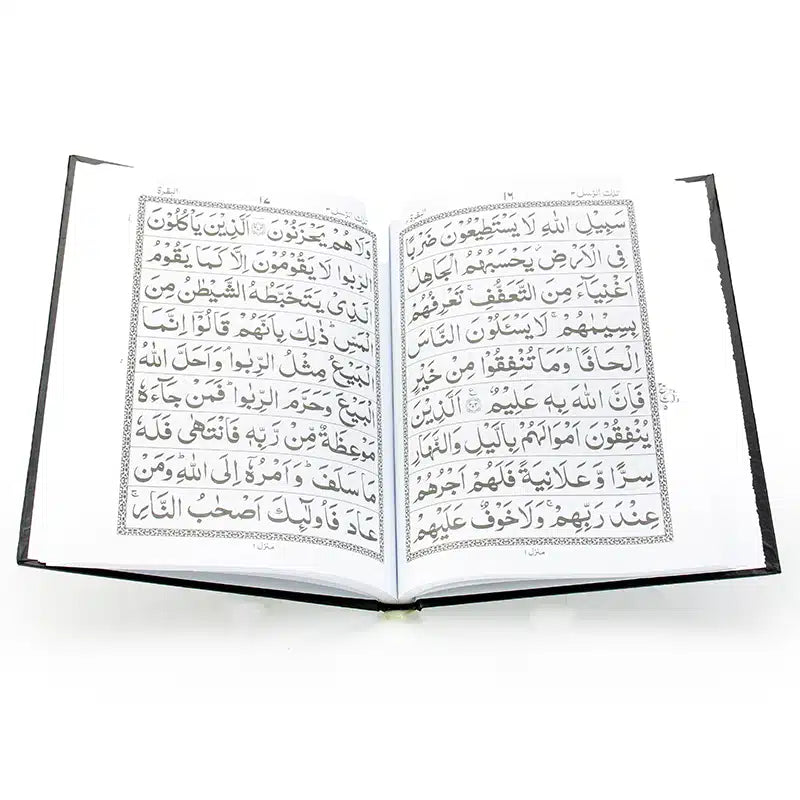 تلك الرسل ٣
١٦
البقرة
سَبِيْلِ اللّٰهِ لَا يَسْتَطِيْعُوْنَ ضَرْبًا
فِى الْاَرْضِ ۫ يَحْسَبُهُمُ الْجَاهِلُ
اَغْنِيَآءَ مِنَ التَّعَفُّفِ ۚ تَعْرِفُهُمْ
بِسِيْمٰهُمْ ۚ لَا يَسْـَٔلُوْنَ النَّاسَ
اِلْحَافًا ؕ وَمَا تُنْفِقُوْا مِنْ خَيْرٍ
فَاِنَّ اللّٰهَ بِهٖ عَلِيْمٌ ۝ اَلَّذِيْنَ
يُنْفِقُوْنَ اَمْوَالَهُمْ بِالَّيْلِ وَالنَّهَارِ
سِرًّا وَّعَلَانِيَةً فَلَهُمْ اَجْرُهُمْ
عِنْدَ رَبِّهِمْ ۚ وَلَا خَوْفٌ عَلَيْهِمْ
منزل ١
تلك الرسل ٣
١٧
البقرة
وَلَا هُمْ يَحْزَنُوْنَ ۝ اَلَّذِيْنَ يَاْكُلُوْنَ
الرِّبٰوا لَا يَقُوْمُوْنَ اِلَّا كَمَا يَقُوْمُ
لَّذِىْ يَتَخَبَّطُهُ الشَّيْطٰنُ مِنَ
لْمَسِّ ؕ ذٰلِكَ بِاَنَّهُمْ قَالُوْٓا اِنَّمَا
لْبَيْعُ مِثْلُ الرِّبٰوا ۘ وَاَحَلَّ اللّٰهُ
لْبَيْعَ وَحَرَّمَ الرِّبٰوا ؕ فَمَنْ جَآءَهٗ
مَوْعِظَةٌ مِّنْ رَّبِّهٖ فَانْتَهٰى فَلَهٗ
مَا سَلَفَ ؕ وَاَمْرُهٗٓ اِلَى اللّٰهِ ؕ وَمَنْ
عَادَ فَاُولٰٓئِكَ اَصْحٰبُ النَّارِ ۚ
منزل ١